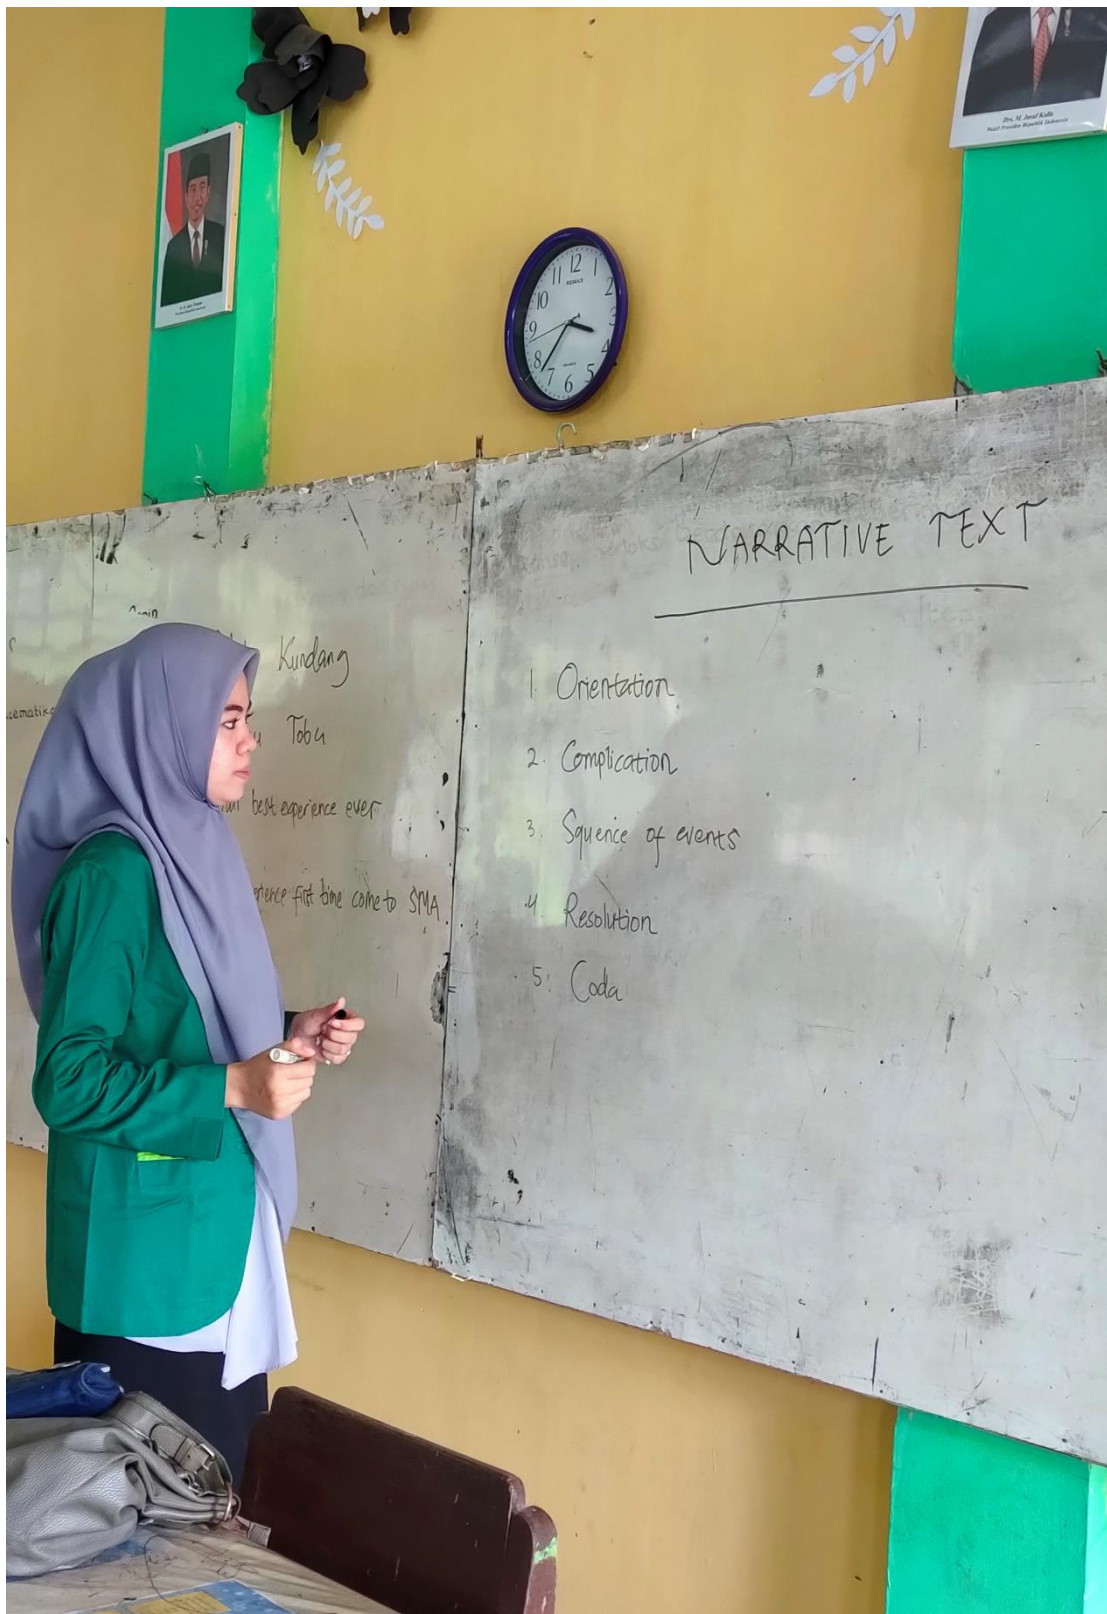 Drs. M. Jusuf Kalla
Wakil Presiden Republik Indonesia
11 12 1
10 2
9 3
8 4
7 6 5
NARRATIVE TEXT
Kundang
Tobu
best experience ever
first time come to SMA
1. Orientation
2. Complication
3. Squence of events
4. Resolution
5. Coda